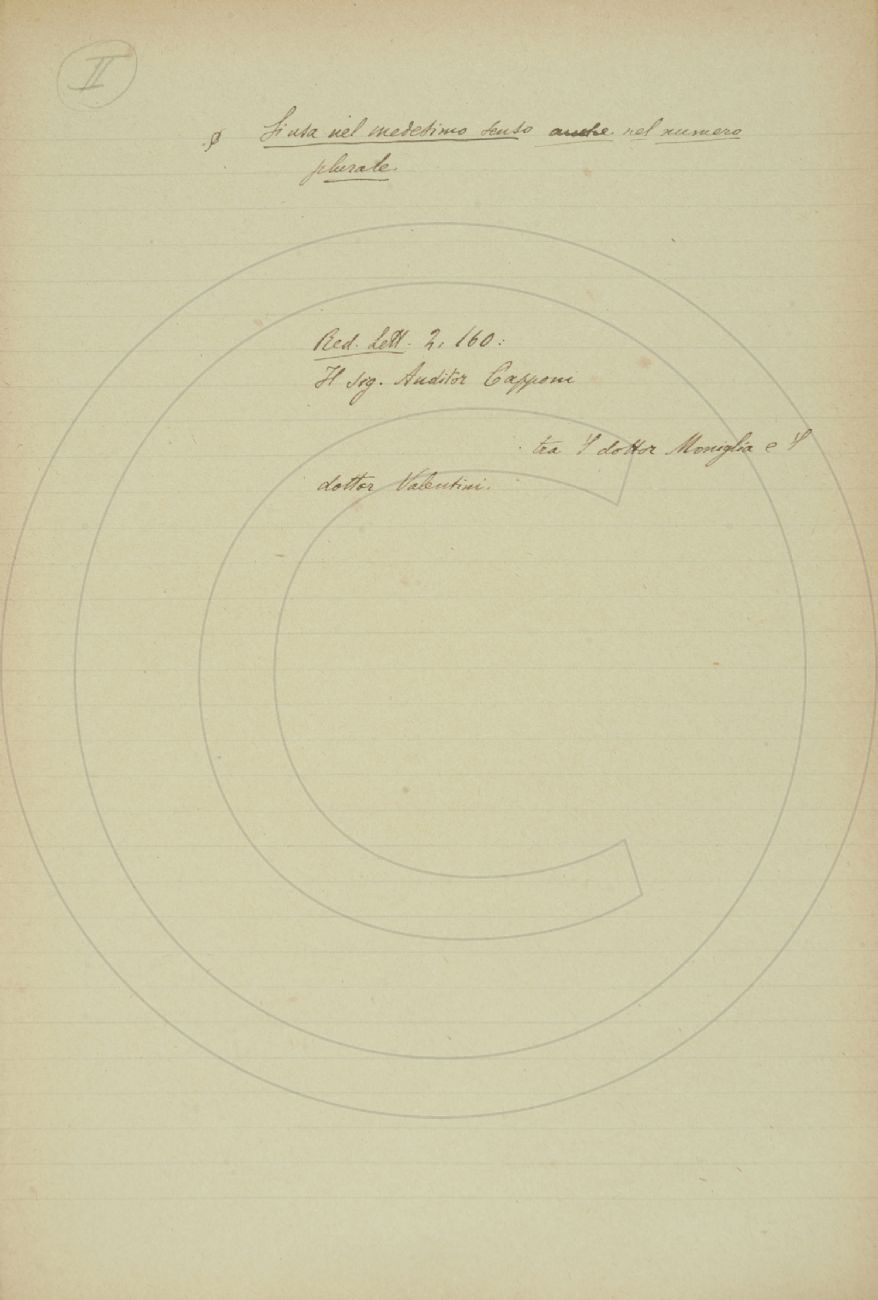 II
§ Si usa nel medesimo senso anche nel numero
plurale.
Red. Lett. 2, 160:
Il sig. Auditor Capponi
tra 'l dottor Moniglia e 'l
dottor Valentini.